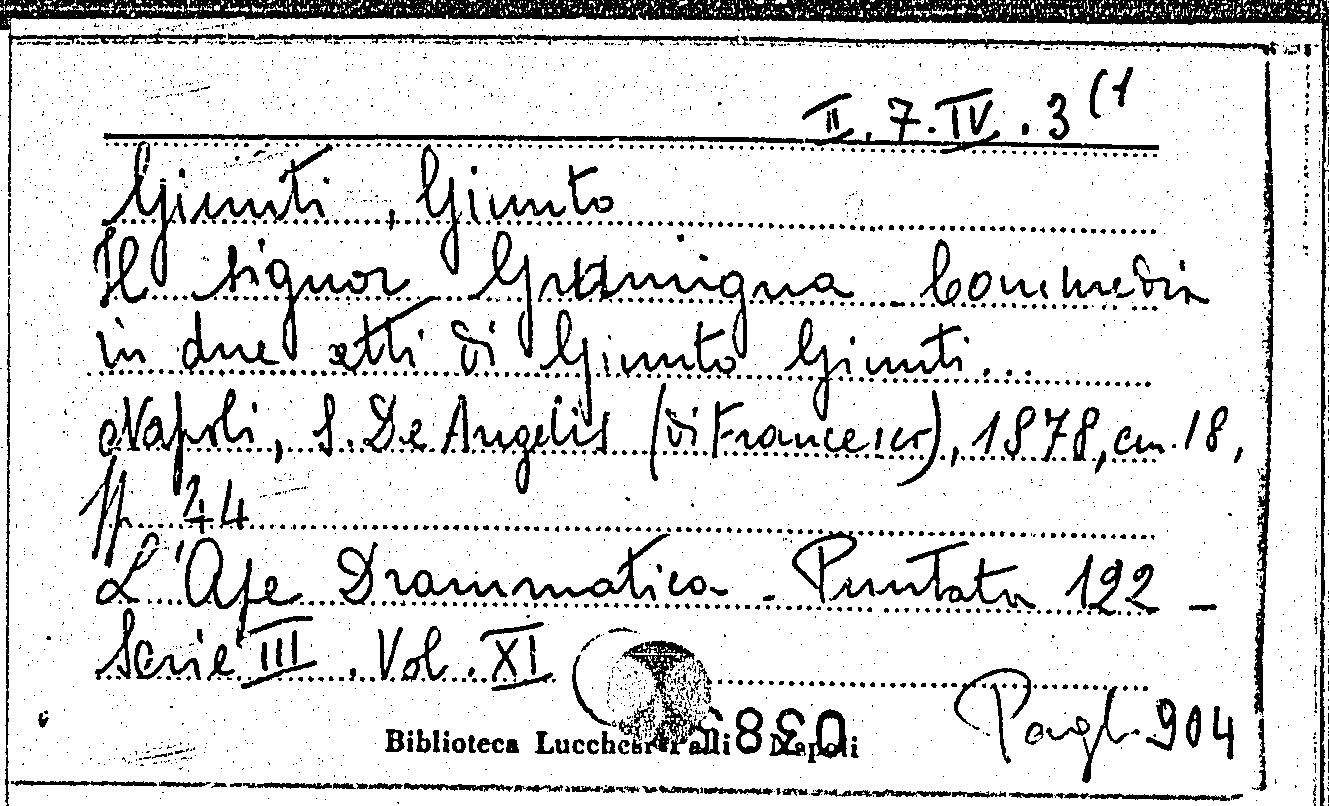 II. 7. IV. 3 (1
Giunti, Giunto
Il signor Gramigna. Commedia
in due atti di Giunto Giunti...
Napoli, S. De Angelis (di Francesco), 1878, cm. 18,
pp. 44
L'Ape Drammatica. Puntata 122 -
Serie III. Vol. XI
Pagl. 904
Biblioteca Lucchesi-Palli Napoli